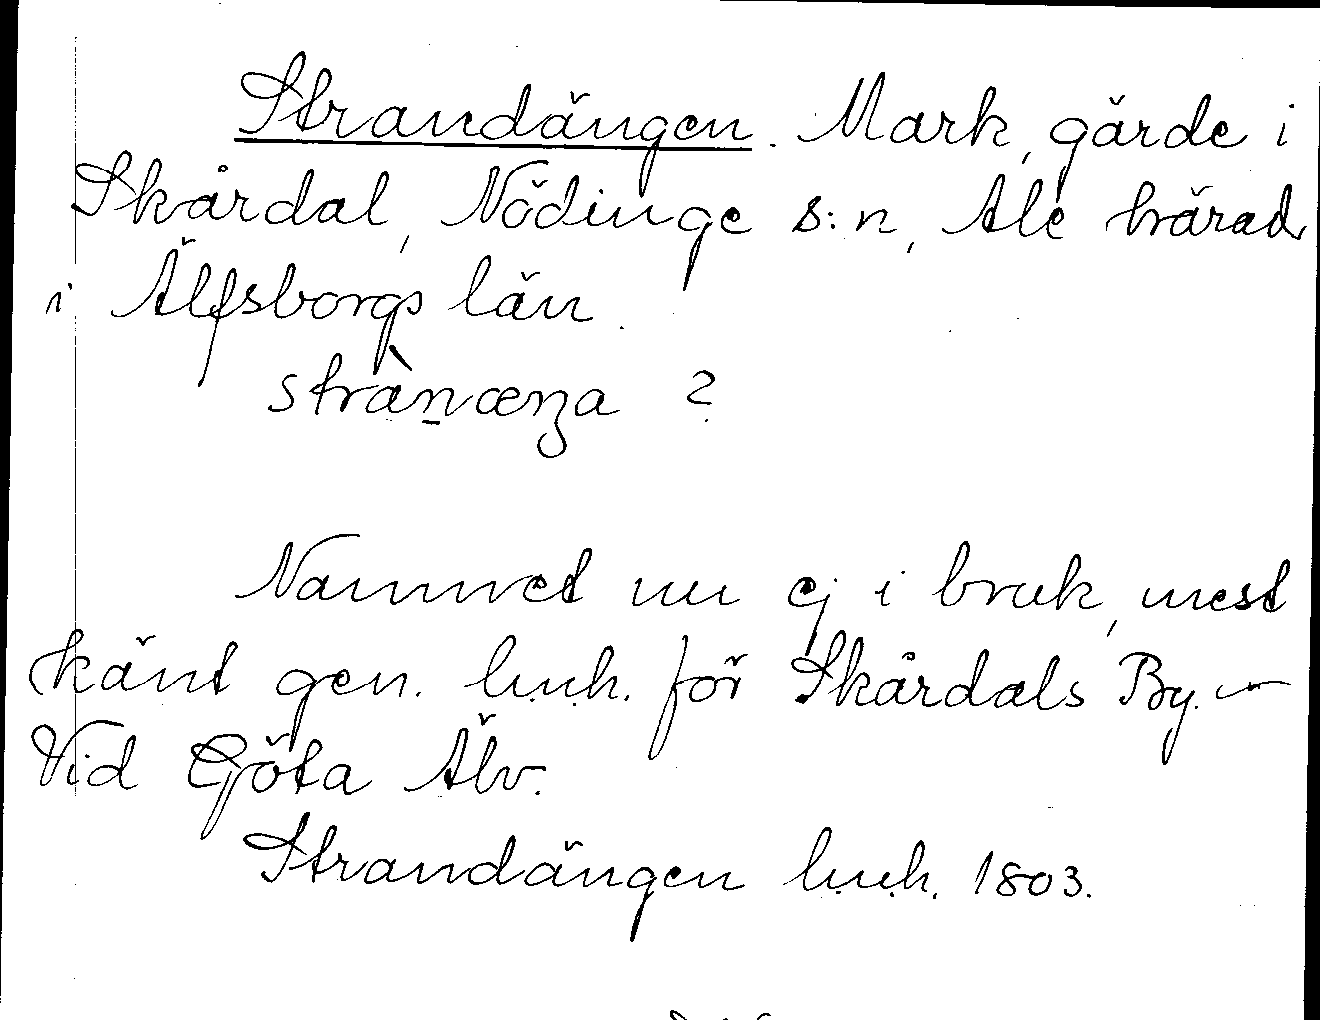 Strandängen. Mark, gärde i
Skårdal, Nödinge s:n, Ale härad
i Älfsborgs län.
strànæŋa ?
Namnet nu ej i bruk, mest
känt gen. l.m.h. för Skårdals By. –
Vid Göta Älv.
Strandängen l.m.h. 1803.